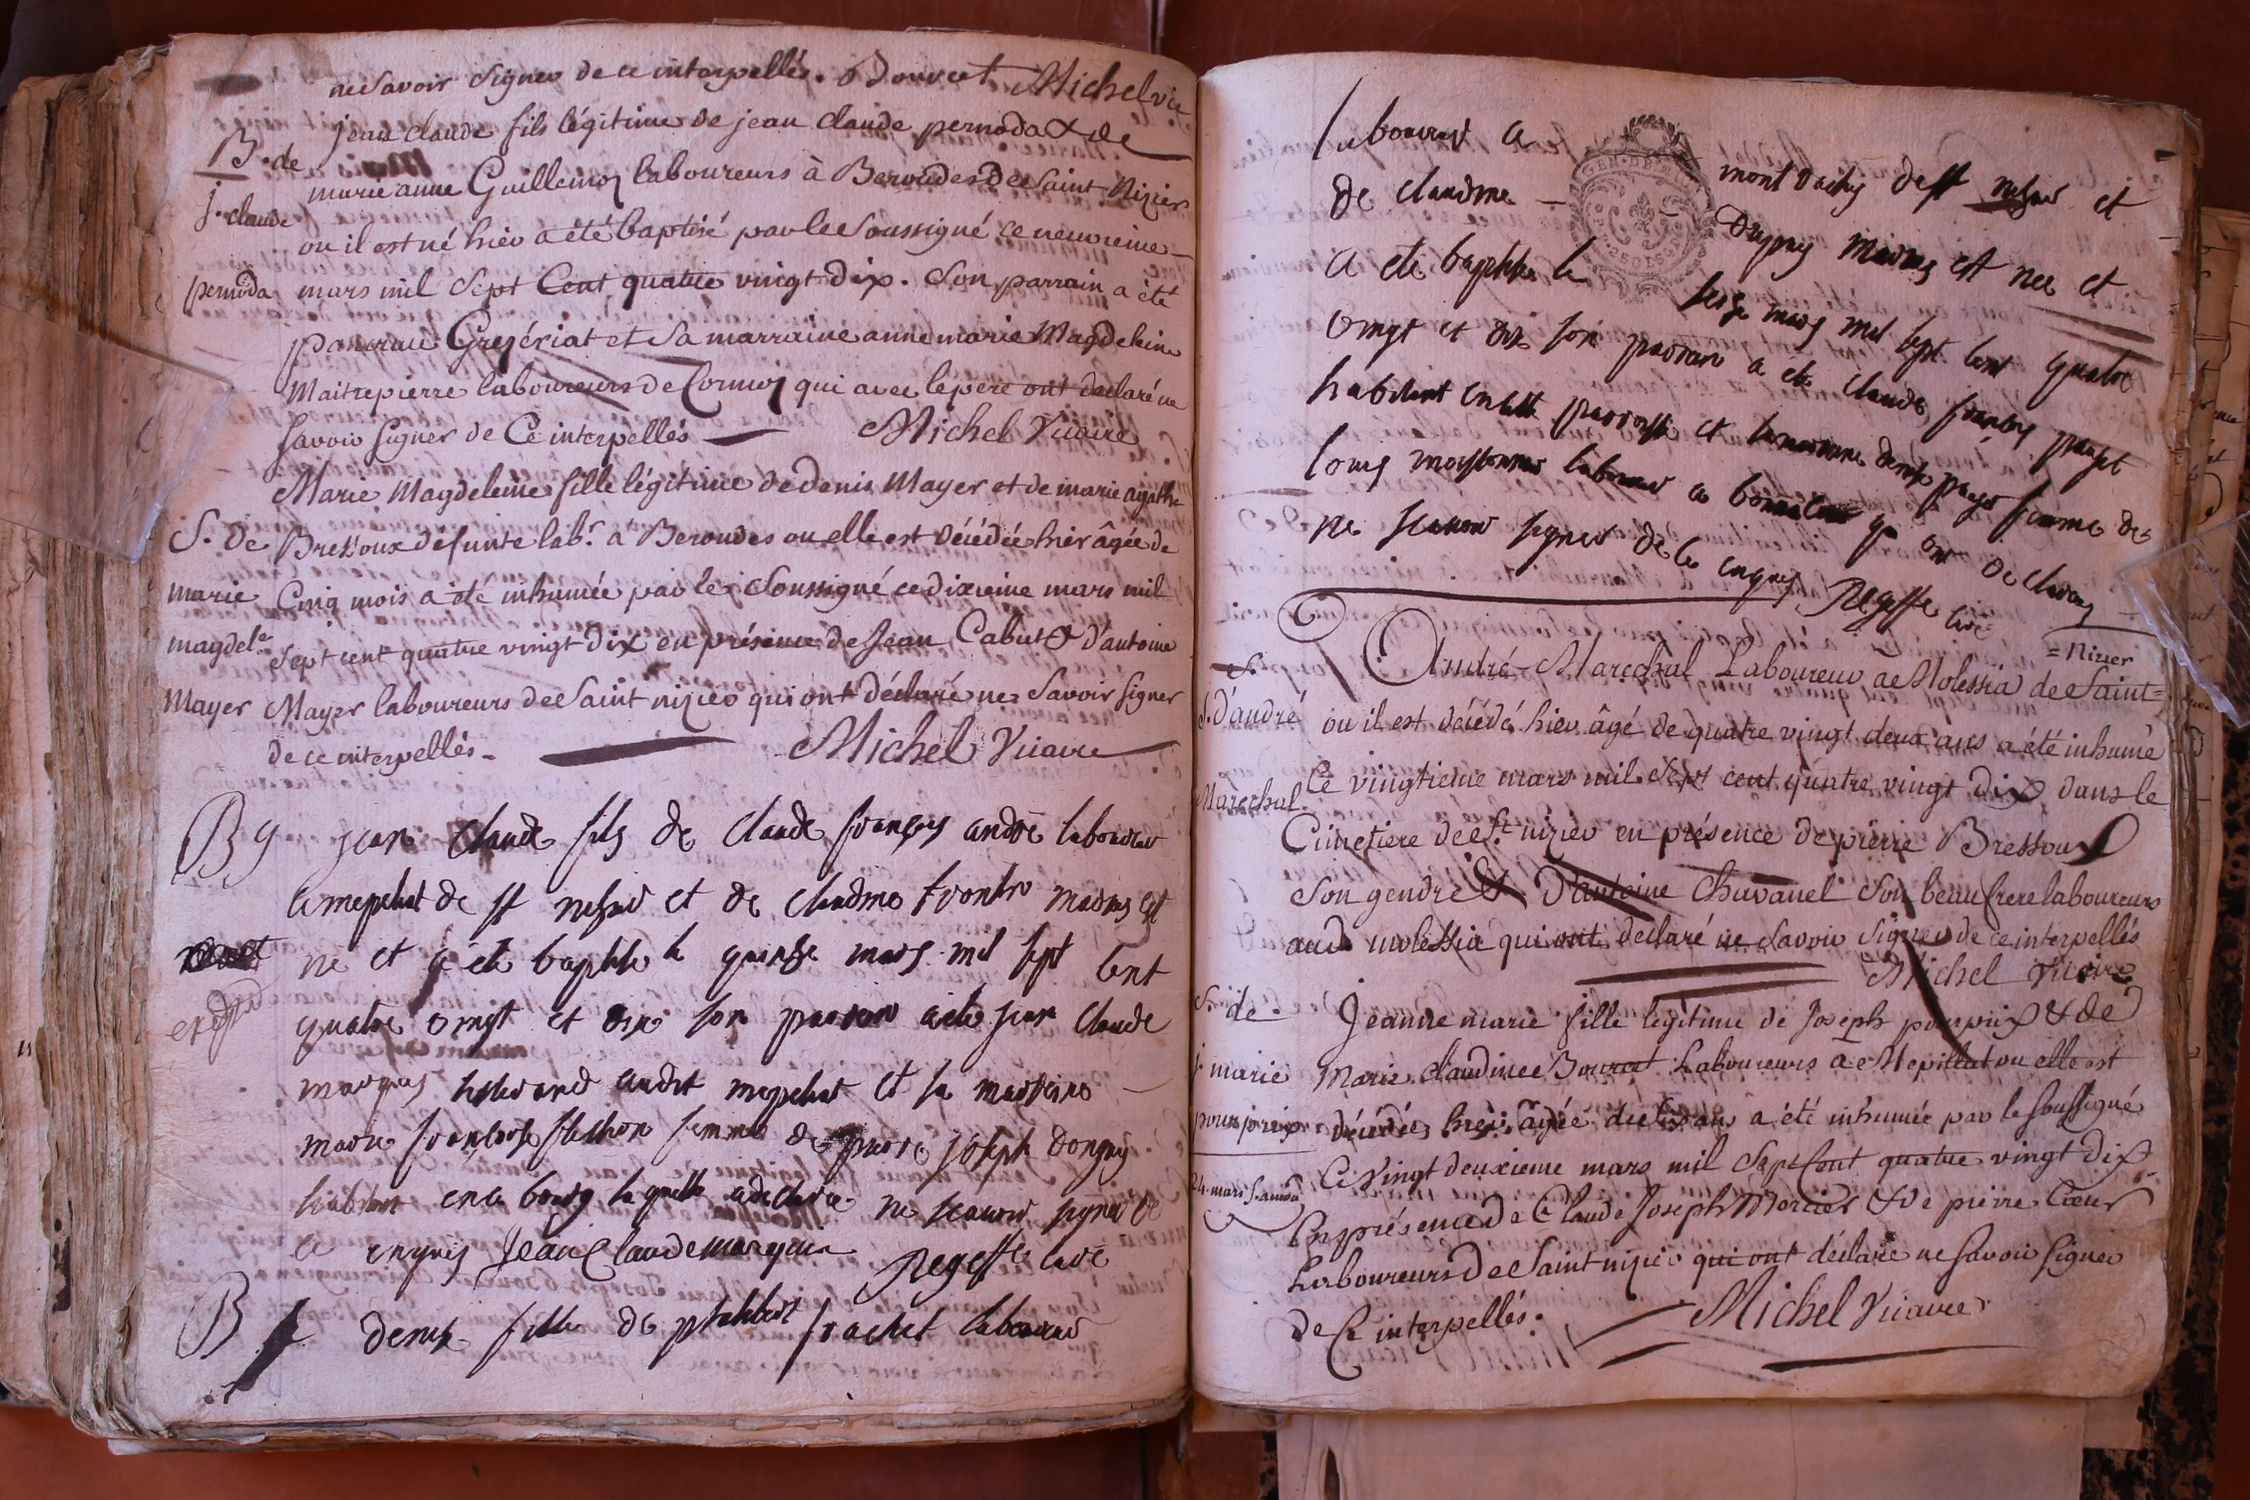 ne Savoir Signer de ce interpellés. Bouvet Michel vic
B. de
J. claude
pernoda
jean claude fils légitime de jean claude pernodat & de
marie anne Guillemoz laboureurs à Beroudes De Saint Nizier
ou il est né hier a été baptisé par le Soussigné ce neuvieme
mars mil Sept Cent quatre vingt dix. Son parrain a été
pancrace Grezériat et Sa marraine anne marie Magdeleine
Maitrepierre laboureurs de Cormoz qui avec le pere ont declaré ne
Savoir Signer de Ce interpellés Michel Vicaire
S. De
marie
magdel.e
Mayer
Marie Magdeleine fille légitime de denis Mayer et de marie agathe
Bressoux defunte lab.r a Beroudes ou elle est décédée hier âgée de
Cinq mois a été inhumée par le Soussigné ce dixieme mars mil
Sept cent quatre vingt dix en présence de Jean Cabut & d'antoine
Mayer laboureurs de Saint nizier qui ont déclaré ne Savoir Signer
de ce interpellés - Michel Vicaire
B
jean claude fils de claude françois andre laboureur
a mepeliat de st nesier et de claudine frontre maries est
né et a ete baptise le quinze mars mil sept cent
quatre vingt et dix son parrain a ete jean claude
marguis audit mepeliat et sa marraine
marie françoise flechon femme de piere joseph
habitant en ce bourg laquelle a declaree ne scavoir signer de
ce enquis Jean Claude marquis Regeffe curé
B
denise fille de philibert frachet laboureur
laboureur a montdacley de st nesier et
de claudine Dupuy maries est nee et
a ete baptise le seize mars mil sept cent quatre
vingt et dix son parrain a ete claude françois
habitant en cette parroisse et la marraine denise femme de
louis moissonnier laboureur a qui ont declares
ne scavoir signer de ce enquis Regeffe curé
S. D'andré
Marechal
=Nizier
André Marechal Laboureur a Molessia de Saint=
ou il est décédé hier âgé de quatre vingt deux ans a été inhumé
Ce vingtieme mars mil Sept cent quatre vingt Dix dans le
Cimetiere de St. nizier en présence de pierre Bressoux
Son gendre & D'antoine Chavanel Son beaufrere laboureurs
aud. molessia qui ont declaré ne Savoir Signer de ce interpellés
Michel Vicaire
S. de
j. marie
pourprix
24. mars
Jeanne marie fille légitime de Joseph pourprix & de
Marie claudine Bouvet Laboureurs à Mepillat ou elle est
décédée hier âgée de Six ans a été inhumée par le Soussigné
Ce Vingt deuxieme mars mil Sept Cent quatre vingt Dix
En présence de Claude Joseph Mercier & de pierre Cœur
Laboureurs De Saint nizier qui ont déclaré ne Savoir Signer
De Ce interpellés. Michel Vicaire